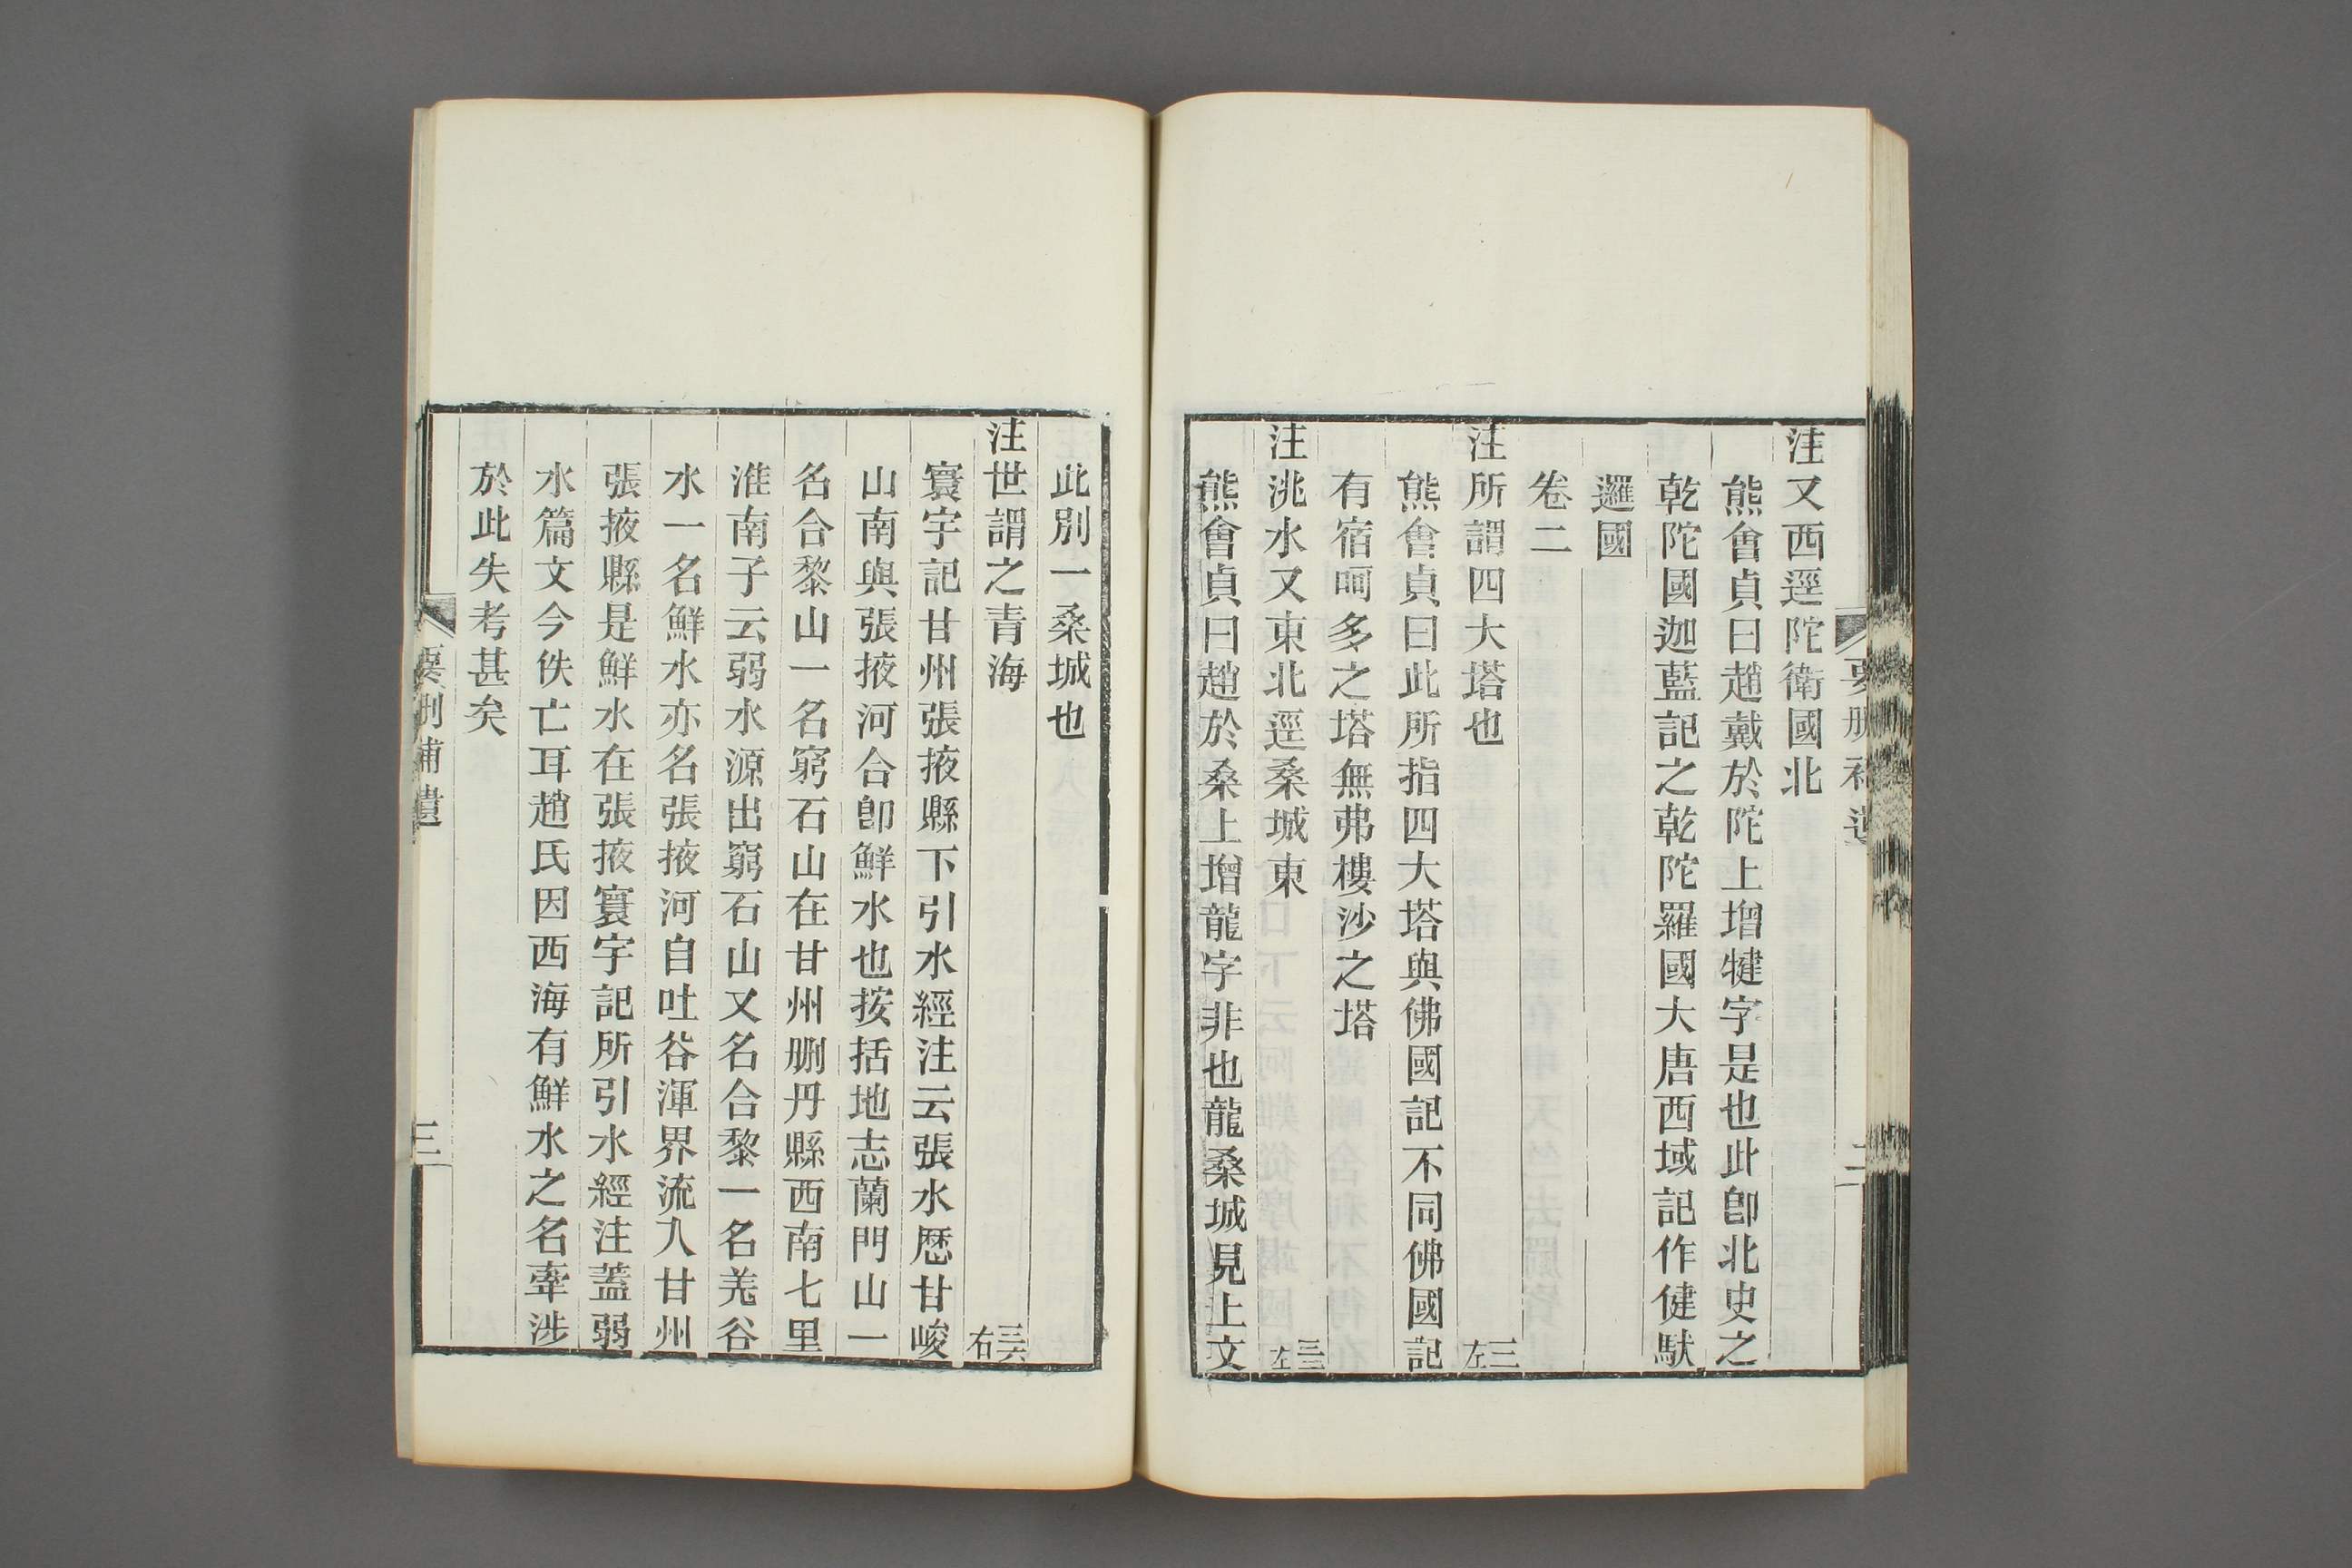 要刪補遺
二
注又西逕陀衛國北
熊會貞曰趙戴於陀上增犍字是也此卽北史之
乾陀國迦藍記之乾陀羅國大唐西域記作健馱
邏國
卷二
注所謂四大塔也
三左
熊會貞曰此所指四大塔與佛國記不同佛國記
有宿呵多之塔無弗樓沙之塔
注洮水又東北逕桑城東
三三左
熊會貞曰趙於桑上增龍字非也龍桑城見上文
此別一桑城也
注世謂之靑海
三六右
寰宇記甘州張掖縣下引水經注云張水歷甘峻
山南與張掖河合卽鮮水也按括地志蘭門山一
名合黎山一名窮石山在甘州刪丹縣西南七里
淮南子云弱水源出窮石山又名合黎一名羌谷
水一名鮮水亦名張掖河自吐谷渾界流入甘州
張掖縣是鮮水在張掖寰宇記所引水經注蓋弱
水篇文今佚亡耳趙氏因西海有鮮水之名牽涉
於此失考甚矣
要刪補遺
三